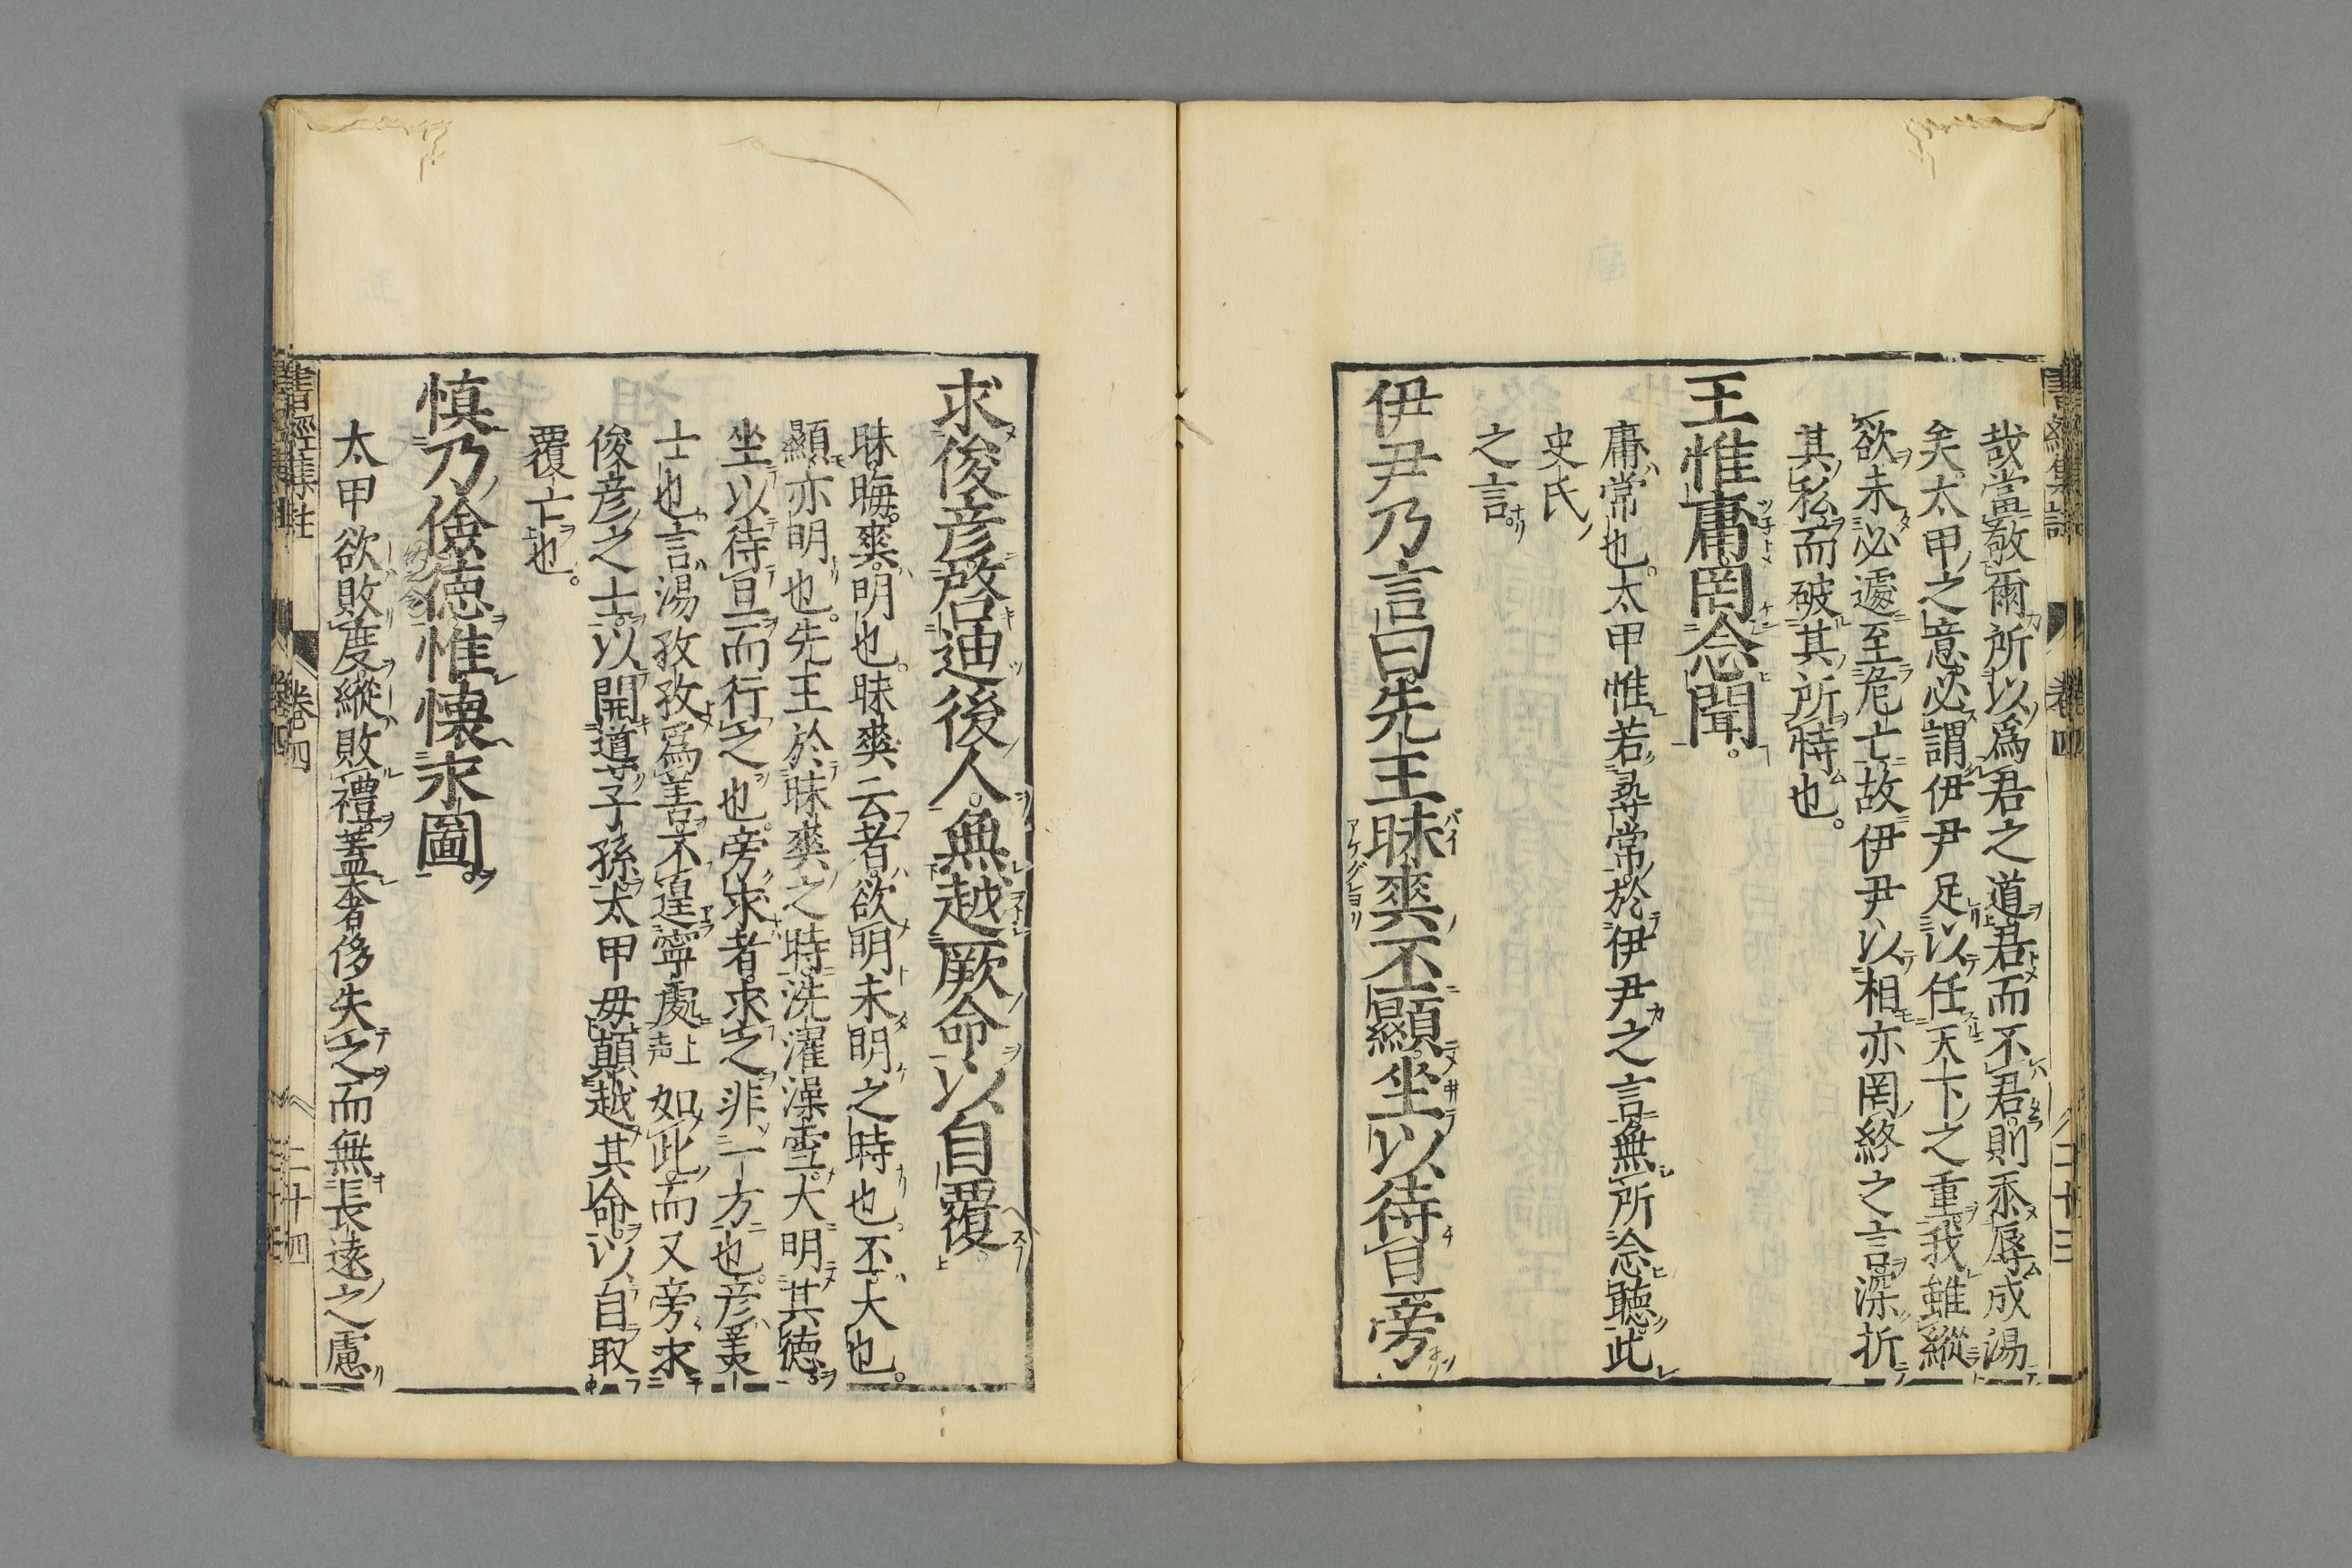 哉當敬爾所以爲君之道君而不君則忝辱成湯
矣太甲之意必謂伊尹足以任天下之重我雖縱
欲未必遽至危亡故伊尹以相亦罔終之言深折
其私而破其所恃也。
王惟庸罔念聞。
庸常也。太甲惟若尋常於伊尹之言無所念聽此
史氏
之言。
伊尹乃言曰先王昧爽丕顯坐以待旦旁
求俊彦啓迪後人。無越厥命以自覆。
昧晦。爽明也。昧爽云者欲明未明之時也。丕大也。
顯亦明也。先王於昧爽之時洗濯澡雪大明其德
坐以待旦而行之也。旁求者求之非一方也。彦美
士也言湯孜孜爲善不遑寧處上声如此而又旁求
俊彦之士以開道子孫太甲毋顛越其命以自取
覆亡也。
慎乃儉德惟懷永圖。
太甲欲敗度縱敗禮蓋奢侈失之而無長遠之慮
書經集註 卷四 二十四